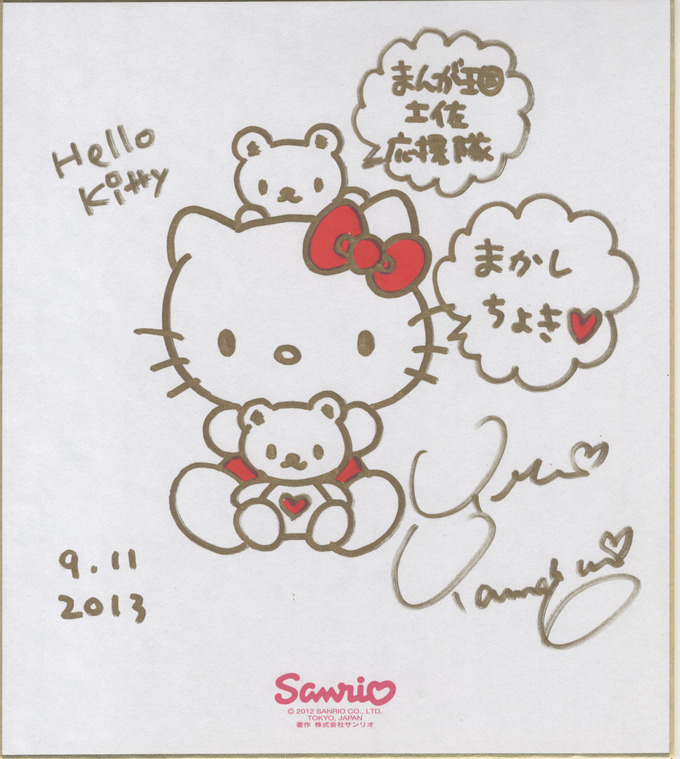 まんが王国
土佐
応援隊
Hello
Kitty
まかし
ちょき
9.11
2013
Sanrio
© 2012 SANRIO CO., LTD.
TOKYO, JAPAN
著作 株式会社サンリオ